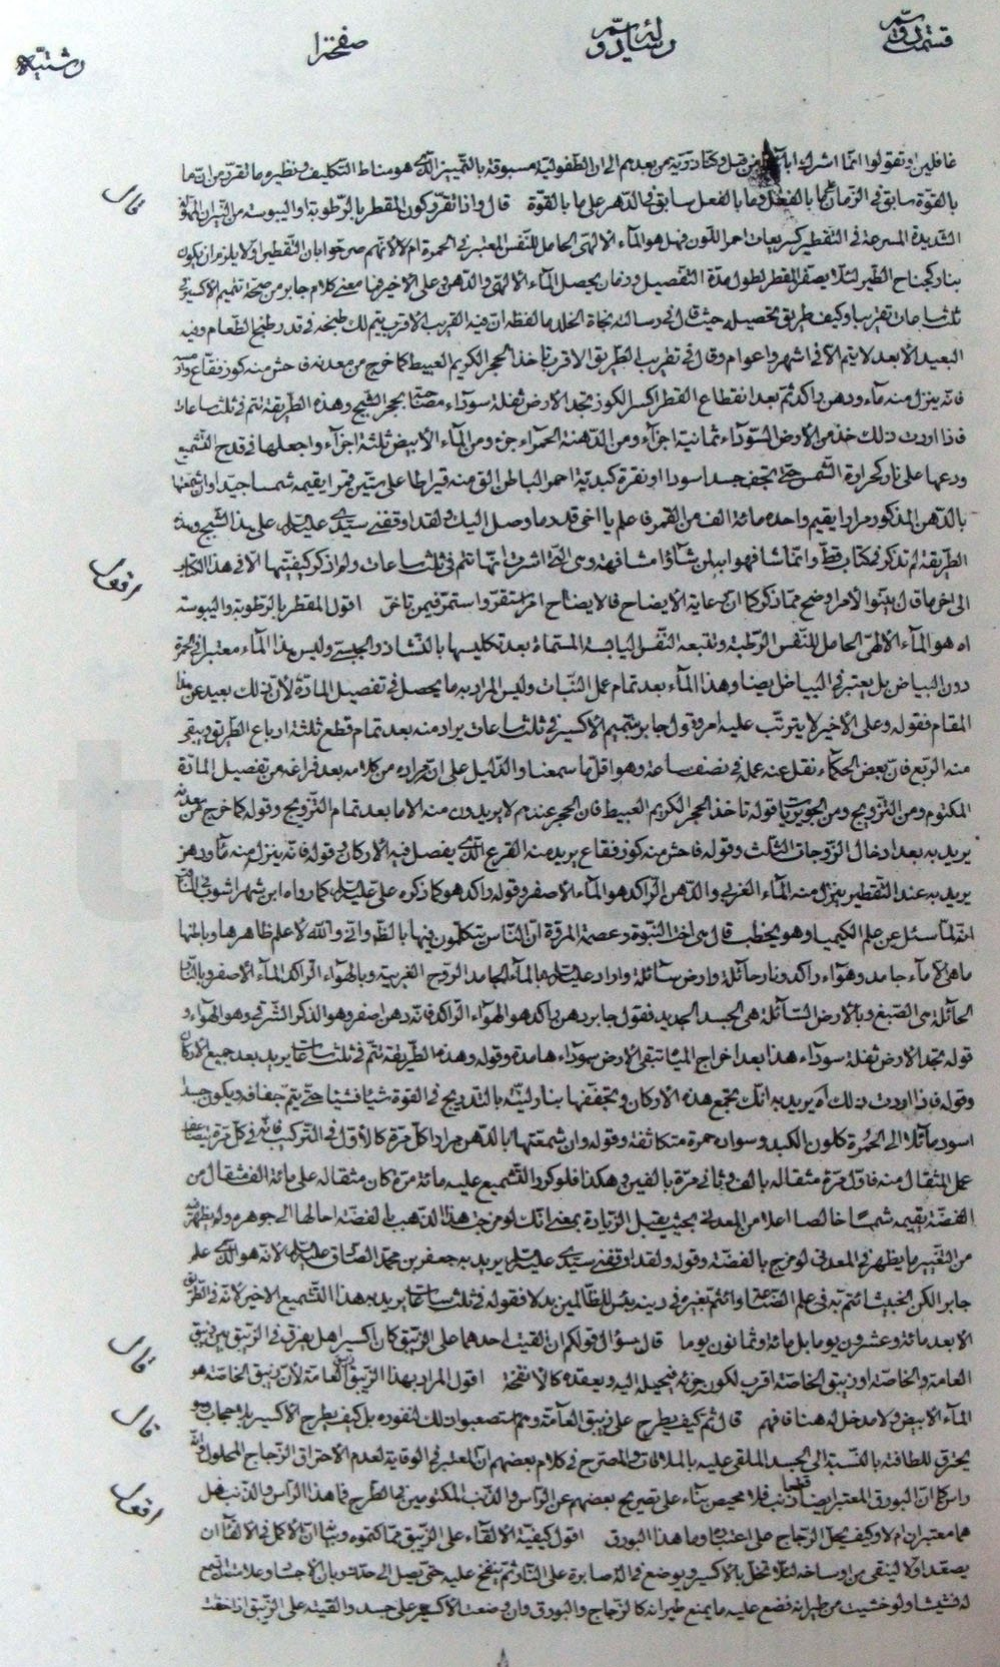 قسمت دوّم رسالهٔ سیّم در صفحهٔ ا رشتیّه
غافلین او تقولوا انّما اشرك اباؤنا من قبل وكنّا ذرّیة من بعدهم الی ان الطفولیّة مسبوقة بالتمییز الّذی هو مناط التكلیف و نظیره ما تقرّر من انّ ما
بالقوّة سابق فی الزمان علی ما بالفعل وما بالفعل سابق فی الدّهر علی ما بالقوة قال واذا تقرّر كون المقطر بالرّطوبة او الیبوسة من النیران
قال
الشدیدة المسرعة فی التقطیر كسریعات احمر اللّون فهل هو المآء الالهی الحامل للنّفس المعتبر فی الحمرة ام لا لانّهم صرحوا بان التقطیر اوّلا یلزم ان یكون
بنار كجناح الطّیر لئلّا یصفر المقطر لطول مدّة التفصیل و زمان یحصل المآء الالهی والدّهن وعلی الاخیر فما معنی كلام جابر من صحّة تتمیم الاكسیر فی
ثلث ساعات تقریبا وكیف طریق تحصیله حیث قال فی رسالته نجاة الخلد ما لفظه ان فیه القریب الاقرب یتم لك طبخه فی قدر طبخ الطّعام وفیه
البعید الأبعد لا یتم الّا فی اشهر واعوام وقال فی تقریب الطّریق الاقرب تأخذ الحجر الكریم العبیط كما خرج من معدنه فاحش منه كوز فقاع
فانّه ینزل منه مآء ودهن راكد ثم بعد انقطاع القطر اكسر الكوز تجد الارض ثفلة سودآء وهذه الطّریقة تتم فی ثلث ساعات
فاذا اردت ذلك خذ من الأرض السّودآء ثمانیة اجزآء ومن الدّهنة الحمرآء جزء ومن المآء الأبیض ثلثة اجزآء واجعلها فی قدح التّشمیع
ودعها علی نار كحرارة الشّمس حتی تجف جسدا سودا او نقرة كبدیّة احمر الباطن الق منه قیراطا علی ستّین قمرا یقیمه شمسا جیّدا وان شمّعتها
بالدّهن المذكور مرارا یقیم واحده مائة الف من القمر فاعلم یا اخی قدر ما وصل الیك ولقد اوقفنی سیّدی علیه السلم علی هذا الشیح وهذه
الطّریقة لم تذكر فی كتاب قطّ وانّما شافهوا بها من شاؤا مشافهة وهی الّتی اشرت انّها تتم فی ثلث ساعات ولم اذكر كیفیّتها الّا فی هذا الكتاب
الی اخر ما قال بیّنوا الأمر اوضح ممّا ذكر كما ان رعایة الایضاح فالایضاح امر استقرّ واستمرّ فیمن تاخّر اقول المقطر بالرّطوبة والیبوسة
اقول
اه هو المآء الالهی الحامل للنّفس الرّطبة وتتبعه النّفس الیابسة المستماة بعد تكلیسها بالنّشادر والجبستی ولیس هذا المآء معتبرا فی الحمرة
دون البیاض بل یعتبر فی البیاض ایضا وهذا المآء بعد تمام عمل النّبات ولیس المراد به ما یحصل فی تفصیل المادّة لأن ذلك بعید عن هذا
المقام فقوله وعلی الأخیر لا یترتّب علیه امر وقول جابر بتتمیم الاكسیر فی ثلث ساعات یراد منه بعد تمام قطع ثلثة ارباع الطّریق و یبقی
منه الرّبع فانّ بعض الحكمآء نقل عنه عمله فی نصف ساعة وهو اقلّ ما سمعنا والدّلیل علی ان مراده من كلامه بعد فراغه من تفصیل المادّة
المكتوم ومن التّزویج ومن قوله تاخذ الحجر الكریم العبیط فان الحجر عندهم لا یریدون منه الّا ما بعد تمام التّزویج وقوله كما خرج من معدنه
یرید به بعد ادخال الزّوجات الثّلث وقوله فاحش منه كوز فقاع یرید منه القرع الّذی یفصل فیه الأركان وقوله فانّه ینزل منه مآء ودهن
یرید به عند التّقطیر ینزل منه المآء الغربی والدّهن الرّاكد هو المآء الأصفر وقوله راكد هو كما ذكره علی علیه السلم كما رواه ابن شهراشوب فی المناقب
انّه لمّا سئل عن علم الكیمیا وهو یخطب قال هی اخت النّبوّة وعصمة المروّة انّ النّاس یتكلّمون فیها بالظّواهر وانّی والله لأعلم ظاهرها وباطنها
ما هی الّا مآء جامد وهوآء راكد ونار حائلة وارض سآئلة واراد علیه السلم بالمآء الجامد الرّوح الغربیة وبالهوآء الرّاكد المآء الأصفر وبالنّار
الحائلة هی الصّبغ وبالارض السّائلة هی الجسد الجدید فقول جابر دهن راكد هو الهوآء الرّاكد فانّه دهن اصفر وهو الذّكر الشّرقی وهو الهوآء و
قوله تجد الارض ثفلة سودآء هذا بعد اخراج المیاه تبقی الارض سودآء هامدة وقوله وهذه الطّریقة تتمّ فی ثلث ساعات یرید بعد جمیع الأركان
وقوله فاذا اردت ذلك آه یرید به انّك تجمع هذه الأركان وتجفّفها بنار لیّنة بالتدریج فی القوة شیئا فشیئا حتّی یتمّ جفافه ویكون جسدا
اسود مآئلا الی الحمرة كلون الكبد وسواده حمرة متكاثفة وقوله وان شمعتها بالدّهن مرارا كلّ مرّة كالأوّل فی التّركیب فانّه فی كلّ مرّة یتضاعف
عمل المثقال منه فاوّل مرّة مثقاله بالف وثانی مرّة بالفین وهكذا فلو كرّر التّشمیع علیه مائة مرّة كان مثقاله علی مائة الف مثقال من
الفضّة یقیمه شمسا خالصا اعلا من المعدنی بحیث یقبل الزیادة بمعنی انّك لو مزجت هذا الذّهب بالفضّة احالها الی جوهره ولم یظهر فیه
من التّغییر ما یظهر فی المعدنی لو مزج بالفضّة وقوله ولقد اوقفنی سیّدی علیه السلم یرید به جعفر بن محمّد الصّادق علیه السلم لانّه هو الّذی علم
جابرا لكن الخبیث ائتم به فی علم الصّنعة وائتم بغیره فی دینه بئس للظّالمین بدلا فقوله فی ثلث ساعات یرید به هذا التّشمیع الاخیر لانّه فی الطّریق
الابعد مائة وعشرون یوما بل مائة وثمانون یوما قال سؤال قولكم ان القیت احدهما علی الزیبق كان اكسیرا هل یفرق فی الزّیبق بین زیبق
قال
العامة والخاصّة او زیبق الخاصّة اقرب لكون جزئه فیحیله الیه ویعقده كالانفحة اقول المراد بهذا الزّیبق زیبق العامّة لأن زیبق الخاصّة هو
المآء الابیض ولا مدخل له هنا فافهم قال ثم كیف یطرح علی زیبق العآمّة وهم استصعبوا ذلك لنفوره بل كیف یطرح الاكسیر
قال
یحترق للطافته بالنّسبة الی الجسد الملقی علیه بالملاقات والمصرّح فی كلام بعضهم انّ المعتبر فی الوقایة لعدم الاحتراق الزّجاج المحلول
راس كما انّ البورق المعتبر ایضا ذنب قطعا فلا محیص بنآء علی تصریح بعضهم عن الرّاس والذّنب المكتومین فی الطّرح فما هذا الرّاس والذّنب هل
اقول
هما معتبران ام لا وكیف یحلّ الزّجاج علی اعتباره وما هذا البورق اقول كیفیّة الالقآء علی الزّیبق ممّا كتموه وبیانه انّ الاكمل فی الالقآء ان
یصعّد اوّلا لینقی من اوساخه لئلّا تخلّ بالأكسیر ویوضع فی الة صابرة علی النّار ثم تنفخ علیه حتّی یصل الی حدّ ذوبان الاجساد وعلامته ان تسمع
له نشیشا ولو خشیت من طیرانه فضع علیه ما یمنع طیرانه كالزّجاج والبورق وان وضعت الأكسیر علی جسد والقیته علی الزّیبق اذا خفت